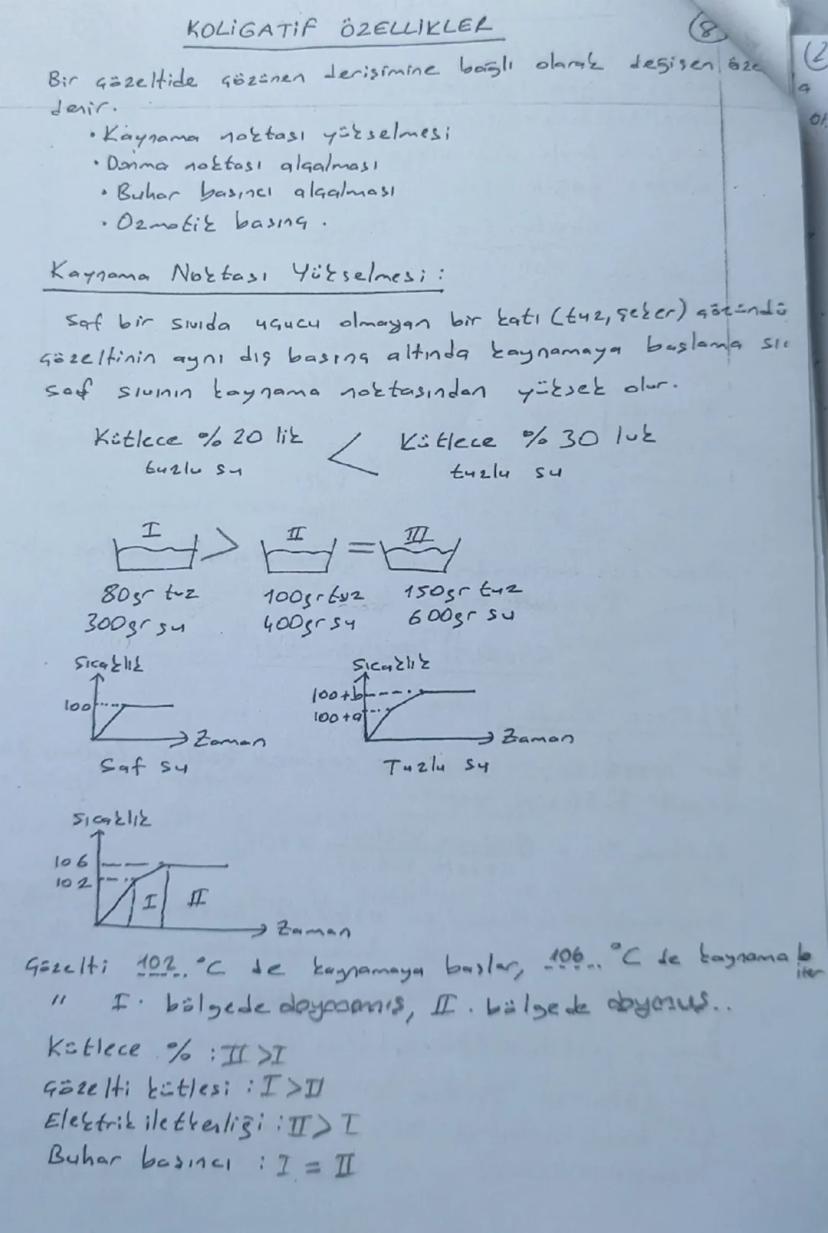 KOLİGATİF ÖZELLİKLER
8
Bir çözeltide çözünen derişimine bağlı olarak değişen öze
denir.
• Kaynama noktası yükselmesi
• Donma noktası alçalması
• Buhar basıncı alçalması
• Ozmotik basınç.
Kaynama Noktası Yükselmesi:
Saf bir sıvıda uçucu olmayan bir katı (tuz, şeker) çözündü
çözeltinin aynı dış basınç altında kaynamaya başlama sıc
saf sıvının kaynama noktasından yüksek olur.
Kütlece % 20 lik < Kütlece % 30 luk
tuzlu su tuzlu su
I > II = III
80gr tuz 100gr tuz 150gr tuz
300gr su 400gr su 600gr su
Sıcaklık Sıcaklık
100 100+b
100+a
Zaman Zaman
Saf su Tuzlu su
Sıcaklık
106
102
I II
Zaman
Çözelti 102.. °C de kaynamaya başlar, 106.. °C de kaynama
biter
" I. bölgede doymamış, II. bölgede doymuş..
Kütlece % : II > I
Çözelti kütlesi : I > II
Elektrik iletkenliği : II > I
Buhar basıncı : I = II